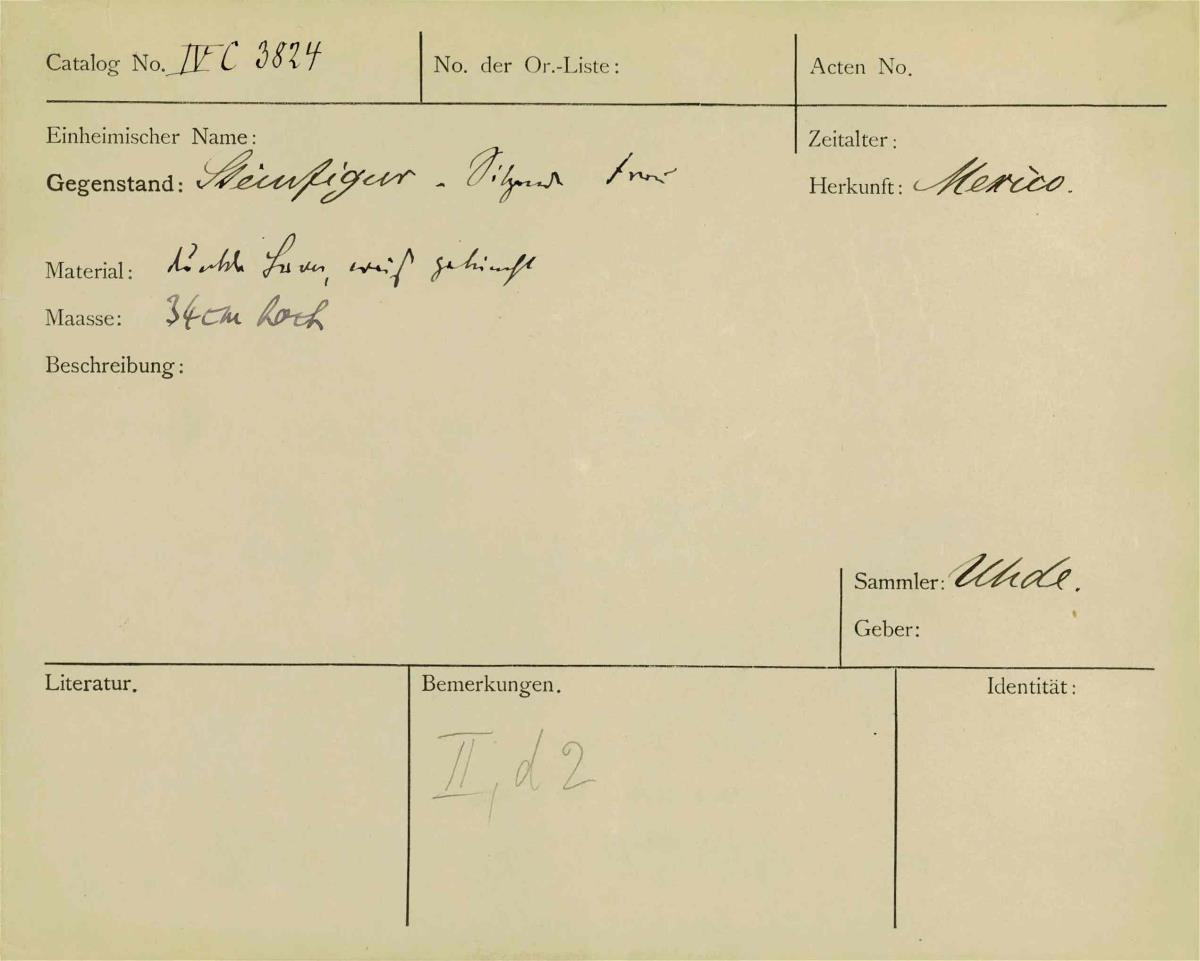 Catalog No. IV C 3824
No. der Or.-Liste:
Acten No.
Einheimischer Name:
Zeitalter:
Gegenstand: Steinfigur - Sitzende Frau
Herkunft: Mexico.
Material: dunkle Lava, weiß getüncht
Maasse: 34cm hoch
Beschreibung:
Sammler: Uhde.
Geber:
Literatur.
Bemerkungen.
Identität:
II, d 2